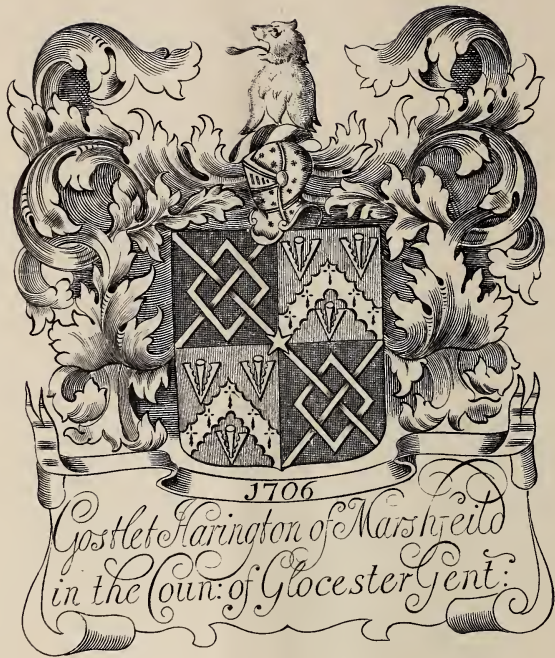 1706
Gostlet Harington of Marshfeild
in the Coun: of Glocester Gent: